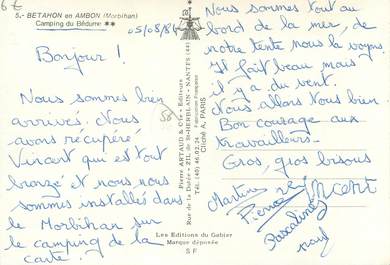 6€
5.- BETAHON en AMBON (Morbihan)
Camping du Bédume **
05/08/86
Bonjour !
Nous sommes bien
arrivés. Nous
avons récupéré
Vincent qui est tout
bronzé et nous nous
sommes installés dans
le Morbihan sur
le camping de la
carte.
56
Pierre ARTAUD & Cie - Editeurs
Rue de la Dutée - ZIL de St-HERBLAIN - NANTES (44)
Tél. (40) 46.02.24 - Fabrication Française
Cliché A. PARIS
Les Editions du Gabier
Marque déposée
S F
Nous sommes tout au
bord de la mer, de
notre tente nous la voyons.
Il fait beau mais
il y a du vent.
Nous allons tous bien.
Bon courage aux
travailleurs.
Gros, gros bisous
Martine
Pierre
Vincent
Pascaline